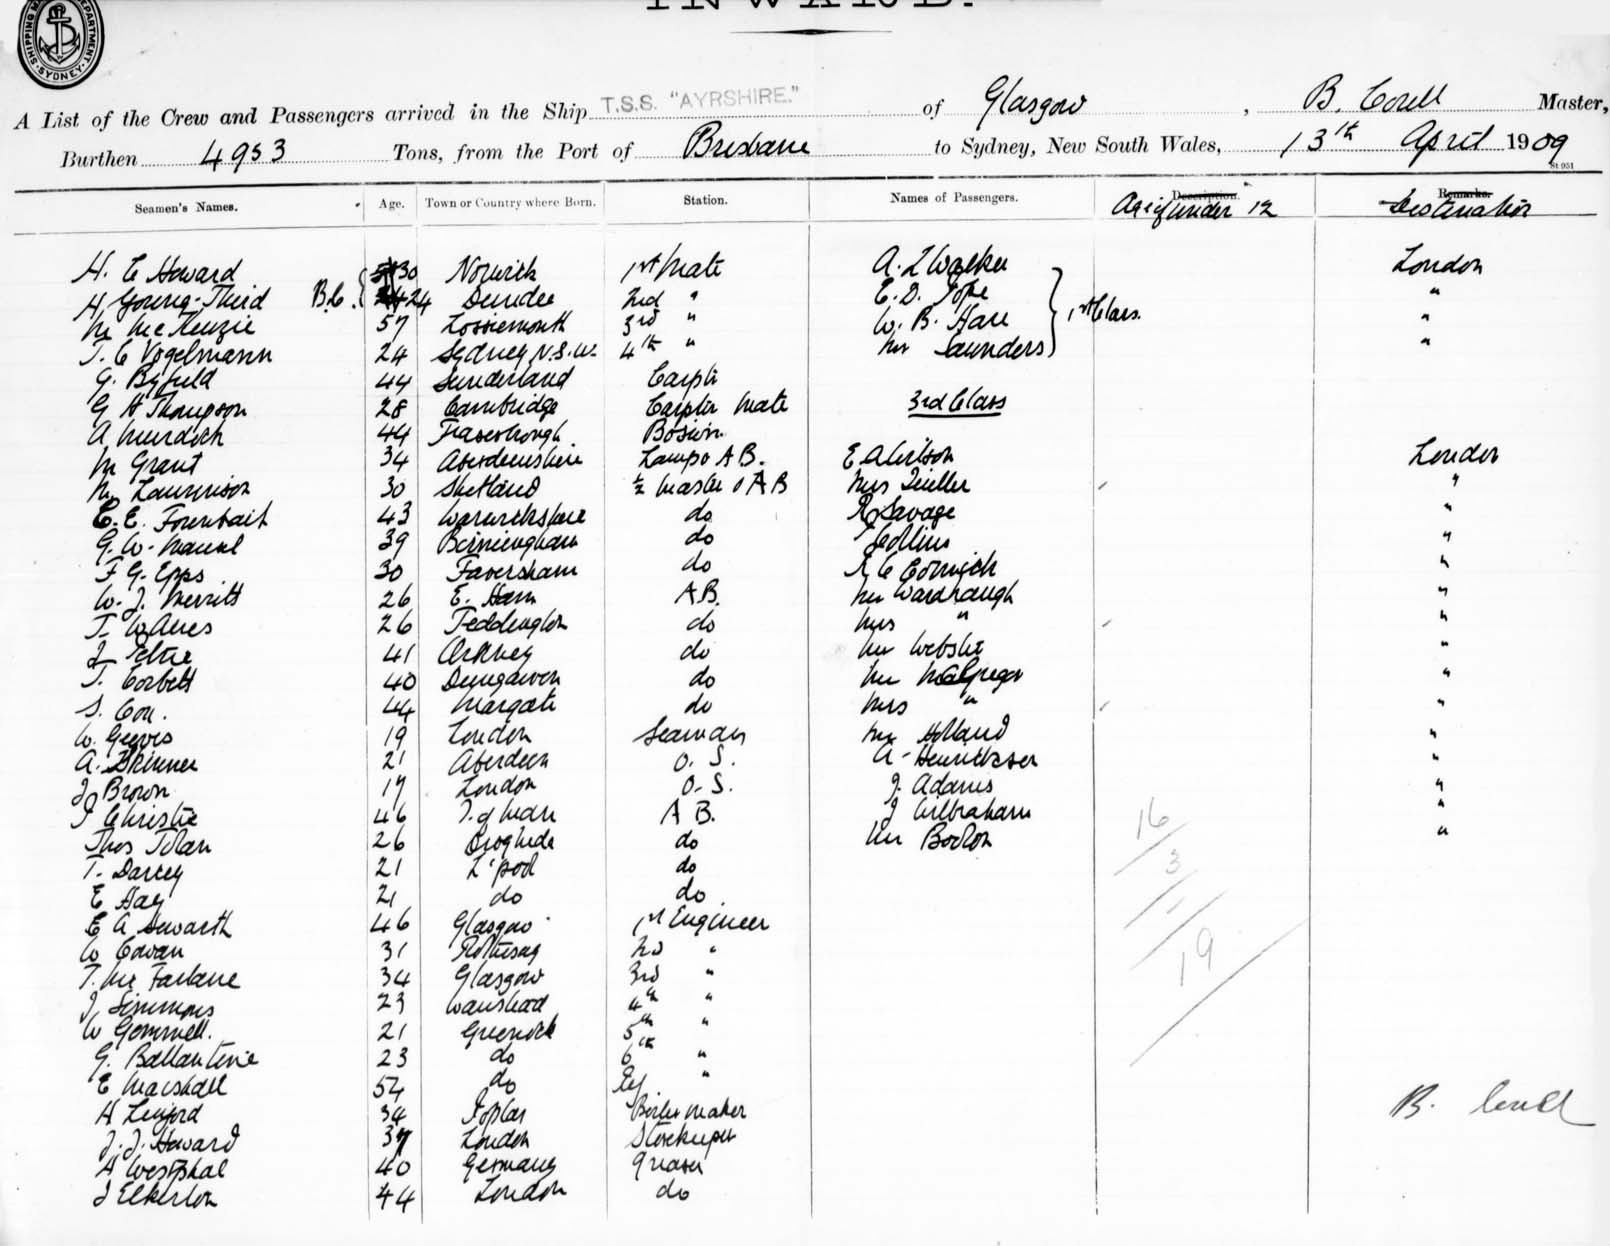 INWARD.
SHIPPING DEPARTMENT SYDNEY
A List of the Crew and Passengers arrived in the Ship T.S.S. "AYRSHIRE." of Glasgow, B. Master,
Burthen 4953 Tons, from the Port of Brisbane to Sydney, New South Wales, 13th April 1909
St 951
Seamen's Names. Age. Town or Country where Born. Station. Names of Passengers. Description. Age if under 12 Remarks. Destination
H. C Howard 30 Norwich 1st Mate A. L Walker London
H Young-Third B.C. 24 Dundee 2nd " E. D. Pope "
M McKenzie 57 Lossiemouth 3rd " W. B. Hare 1st Class. "
T. C Vogelmann 24 Sydney N.S.W. 4th " Mr Saunders "
G. Byfield 44 Sunderland Carptr
G H Thompson 28 Cambridge Carptr Mate 3rd Class
A Murdoch 44 Fraserburgh Bosun
M Grant 34 Aberdeenshire Lamps AB. E A Wilson London
30 Shetland AB Mrs "
C. E. 43 Warwickshire do R Savage "
G. W. 39 Birmingham do Collins "
F G. Epps 30 Faversham do "
W. J. Merritt 26 E. Ham A.B. Mr Wardhaugh "
T. W Aires 26 Teddington do Mrs " "
41 Orkney do Mr Webster "
T. Corbett 40 Dungarvon do Mr McGregor "
S. 44 Margate do Mrs " "
W. Geeves 19 London Seaman Mr Holland "
A. Skinner 21 Aberdeen O. S. A. "
J Brown 17 London O. S. J. Adams "
J Christie 46 I. of Man A B. J Wilbraham "
Thos 26 Drogheda do Mr "
T. Darcey 21 L'pool do
E Hay 21 do do
E A 46 Glasgow 1st Engineer
W Cowan 31 Rothesay 2nd "
T. McFarlane 34 Glasgow 3rd "
J Simmons 23 Wanstead 4th "
W Gemmell. 21 Greenock 5th "
G. Ballantine 23 do 6th "
E Marshall 54 do "
H Linford 34 Poplar Boiler maker
J. J. Howard 37 London Storekeeper
A Westphal 40 Germany Greaser
J Elkerton 44 London do
16
3
1
19
B.